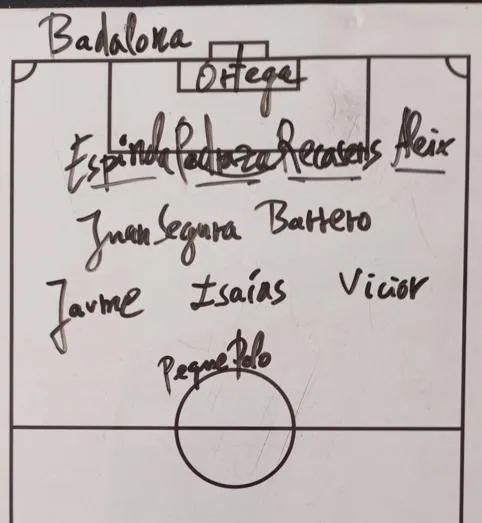 Badalona
Ortega
Espinda Pedraza Recasens Aleix
Juan Segura Barrero
Jaume Isaías Victor
Peque Polo